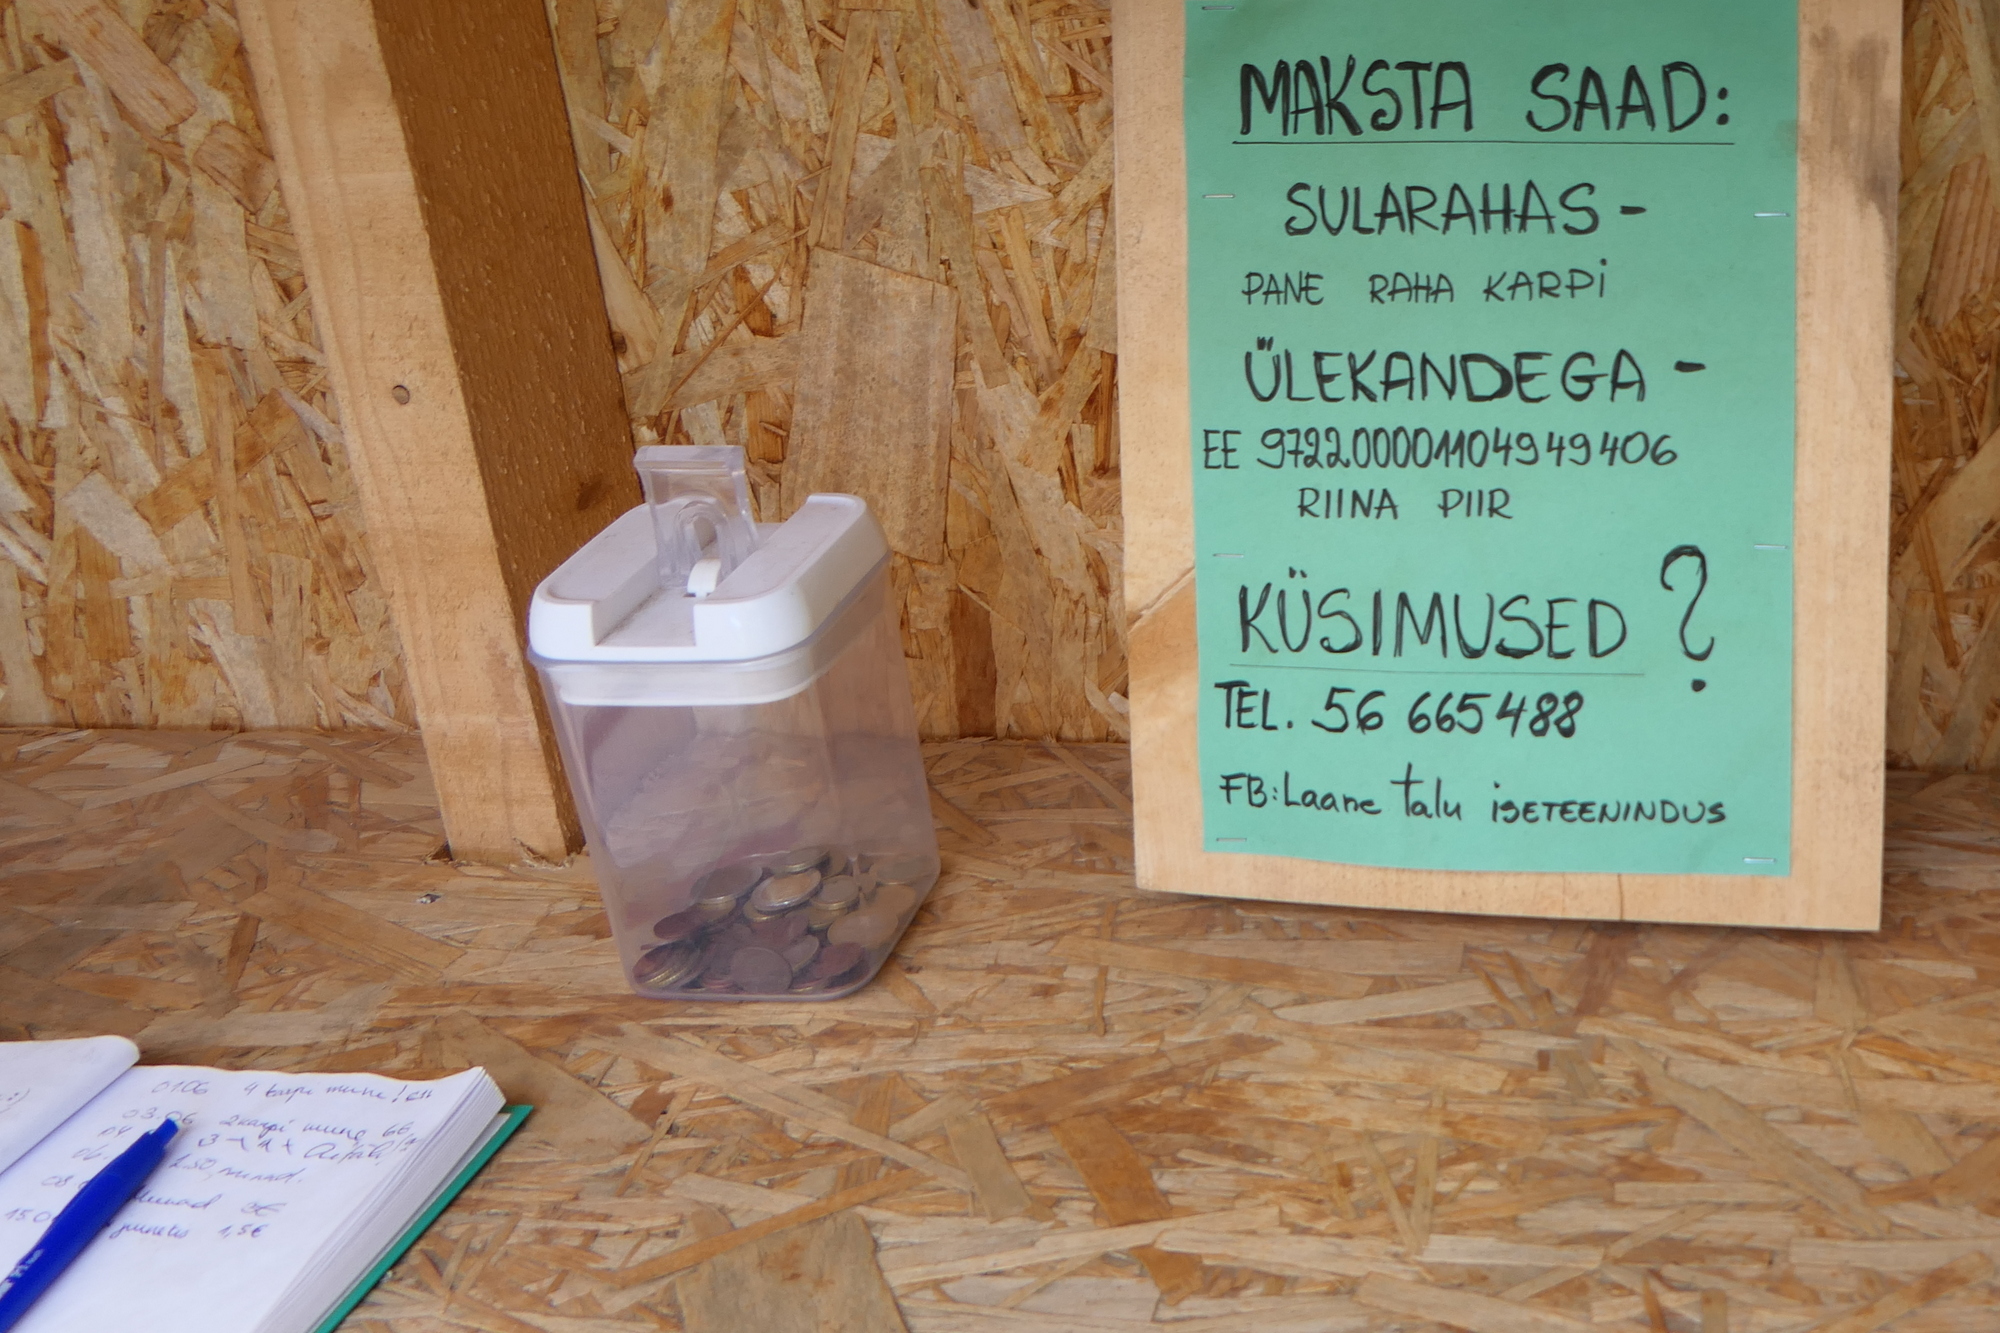 MAKSTA SAAD:
SULARAHAS -
PANE RAHA KARPI
ÜLEKANDEGA -
EE 972200001104949406
RIINA PIIR
KÜSIMUSED ?
TEL. 56 665488
FB: Laane talu ISETEENINDUS
01.06 4 karpi mune!
03.06 2 karpi mune 6€
04
06. 2.50
08
15.0 1,5€